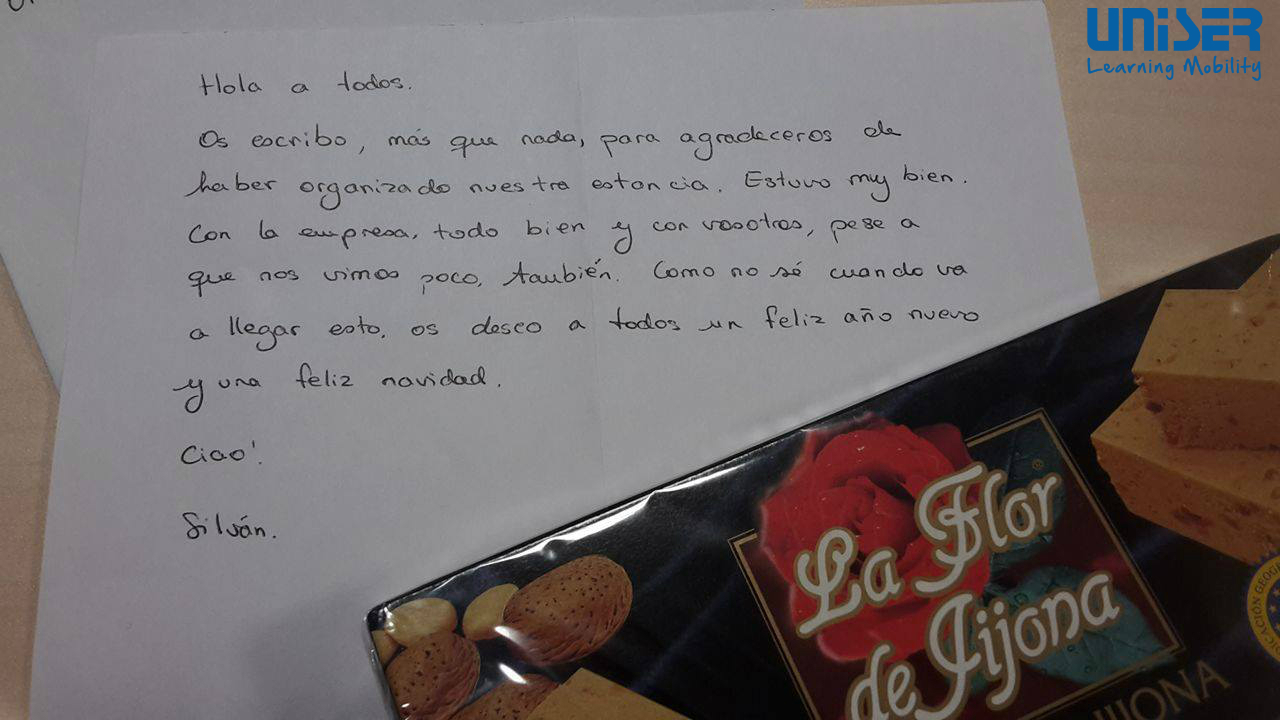 UNISER
Learning Mobility
Hola a todos.
Os escribo, más que nada, para agradeceros de
haber organizado nuestra estancia. Estuvo muy bien.
Con la empresa, todo bien y con vosotros, pese a
que nos vimos poco, también. Como no sé cuando va
a llegar esto, os deseo a todos un feliz año nuevo
y una feliz navidad.
Ciao!
Silván.
La Flor
de Jijona